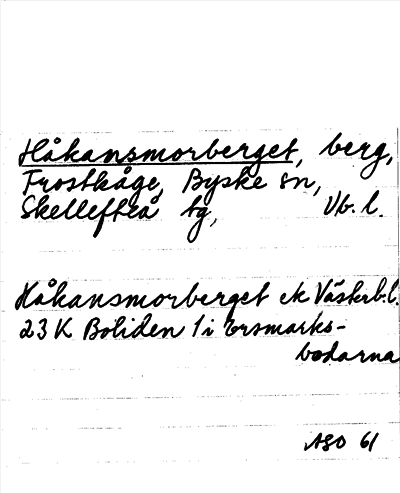 Håkansmorberget, berg,
Frostkåge, Byske sn,
Skellefteå tg, Vb. l.
Håkansmorberget ek Västerb.l.
23 K Boliden 1 i Ersmarks-
bodarna
ASO 61